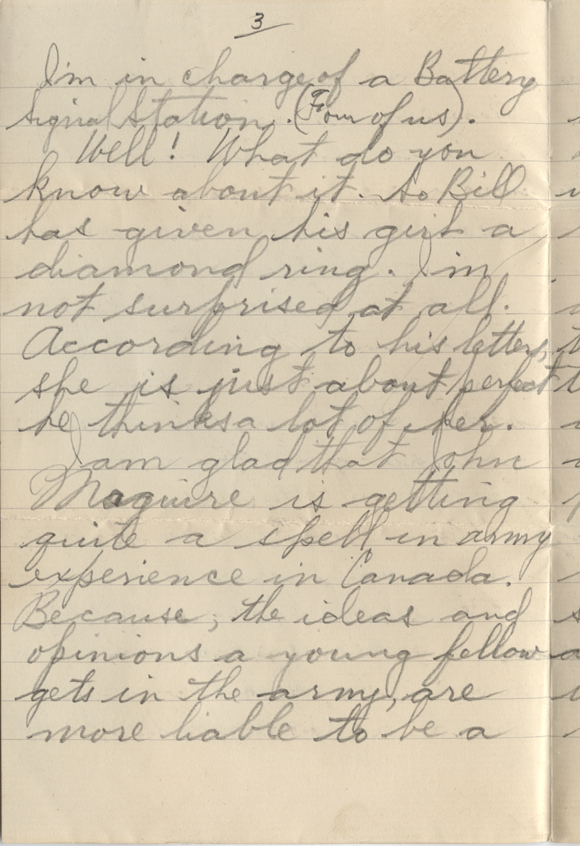 3
I'm in charge of a Battery
Signal Station. (Four of us).
Well! What do you
know about it. So Bill
has given his girl a
diamond ring. I'm
not surprised at all.
According to his letters,
she is just about perfect
he thinks a lot of her.
I am glad that John
Maguire is getting
quite a spell in army
experience in Canada.
Because, the ideas and
opinions a young fellow
gets in the army, are
more liable to be a